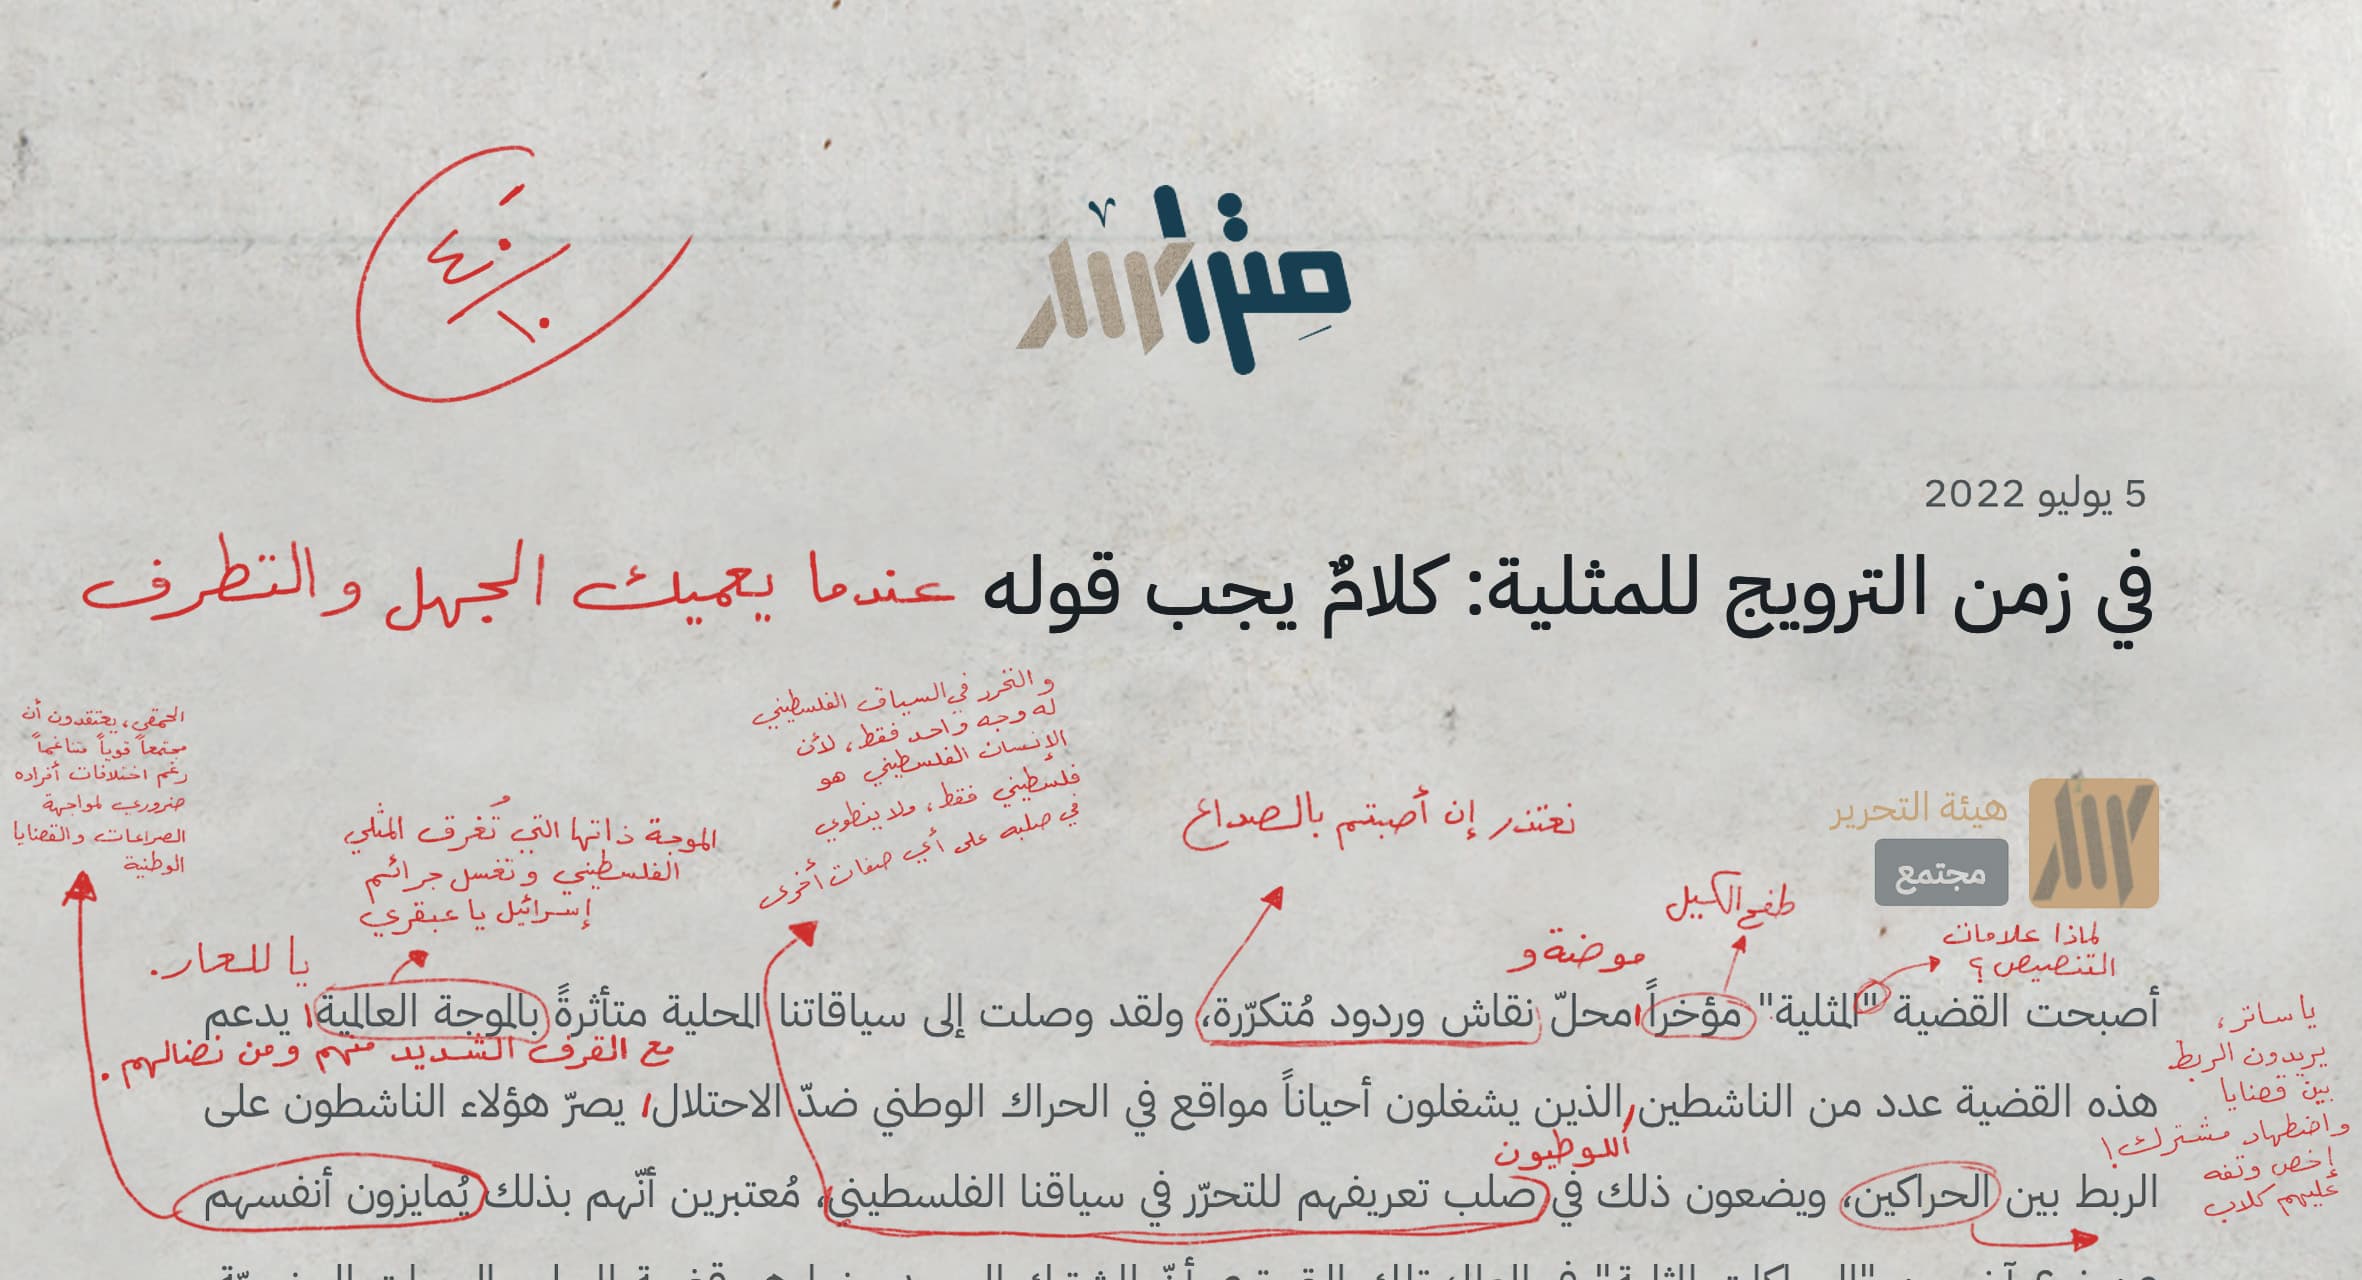 ٤٠
١٠
متراس
5 يوليو 2022
في زمن الترويج للمثلية: كلامٌ يجب قوله عندما يعميك الجهل والتطرف
هيئة التحرير
مجتمع
لماذا علامات
التنصيص؟
طفح الكيل
موضة و
نعتذر إن أصبتم بالصداع
و التحرر في السياق الفلسطيني
له وجه واحد فقط، لأن
الإنسان الفلسطيني هو
فلسطيني فقط، ولا ينطوي
في صلبه على أي صفات أخرى
الموجة ذاتها التي تُغرق المثلي
الفلسطيني و تغسل جرائم
إسرائيل يا عبقري
يا للعار.
الحمقى، يعتقدون أن
مجتمعاً قوياً متناغماً
رغم اختلافات أفراده
ضروري لمواجهة
الصراعات والقضايا
الوطنية
أصبحت القضية "المثلية" مؤخراً محلّ نقاش وردود مُتكرّرة، ولقد وصلت إلى سياقاتنا المحلية متأثرةً بالموجة العالمية يدعم
مع القرف الشديد منهم ومن نضالهم.
هذه القضية عدد من الناشطين الذين يشغلون أحياناً مواقع في الحراك الوطني ضدّ الاحتلال يصرّ هؤلاء الناشطون على
اللوطيون
الربط بين الحراكين، ويضعون ذلك في صلب تعريفهم للتحرّر في سياقنا الفلسطيني، مُعتبرين أنّهم بذلك يُمايزون أنفسهم
يا ساتر،
يريدون الربط
بين قضايا
واضطهاد مشترك!
إخص وتفه
عليهم كلاب